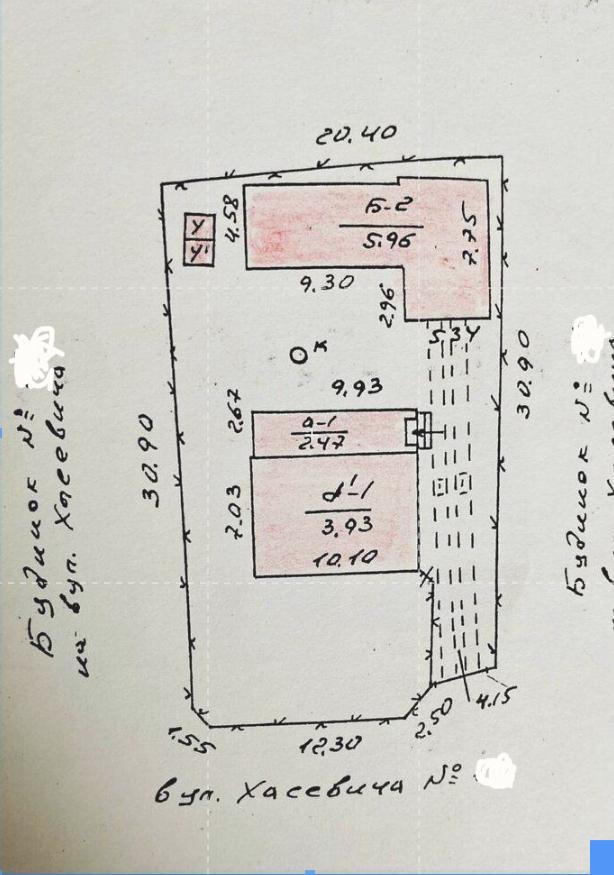 20.40
4.58
Б-2
5.96
7.75
У
У'
9.30
2.96
5 3 4
К
9.93
30.90
30.90
2.67
а-1
2.47
7.03
А'-1
3.93
10.10
1.55
12.30
2.50
4.15
Будинок №
на вул. Хасевича
Будинок №
вул. Хасевича №